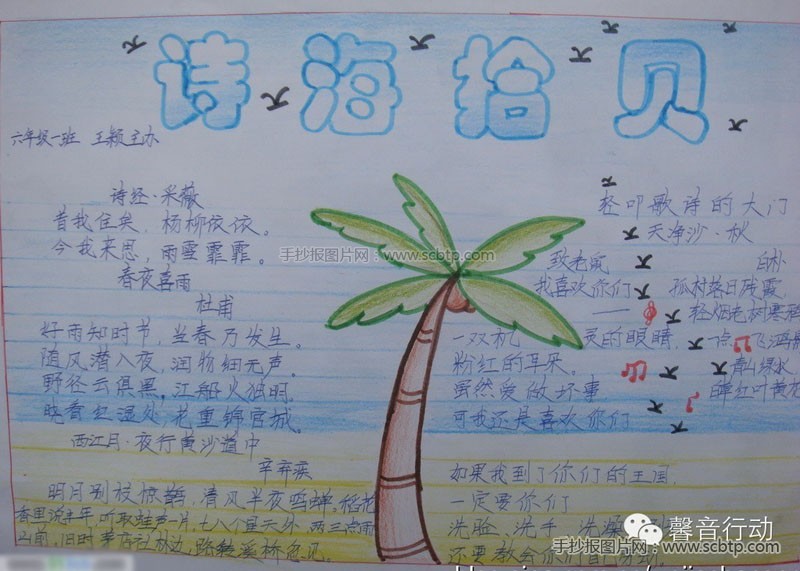 诗海拾贝
六年级一班 王颖主办
诗经·采薇
昔我住矣，杨柳依依。
今我来思，雨雪霏霏。
春夜喜雨
杜甫
好雨知时节，当春乃发生。
随风潜入夜，润物细无声。
野径云俱黑，江船火独明。
晓看红湿处，花重锦官城。
西江月·夜行黄沙道中
辛弃疾
明月别枝惊鹊，清风半夜鸣蝉。稻花
香里说丰年，听取蛙声一片。七八个星天外，两三点雨
山前，旧时茅店社林边，路转溪桥忽见。
轻叩歌诗的大门
致老鼠
我喜欢你们
——
一双机 灵的眼睛
粉红的耳朵。
虽然爱做坏事
可我还是喜欢你们
如果我到了你们的王国
一定要你们
洗脸、洗手、洗澡
还要教会你们
天净沙·秋
白朴
孤村落日残霞，
轻烟老树寒鸦
一点飞鸿
青山绿水，
白草红叶黄花
手抄报图片网
www.scbtp.com
馨音行动
手抄报图片网：www.scbtp.com